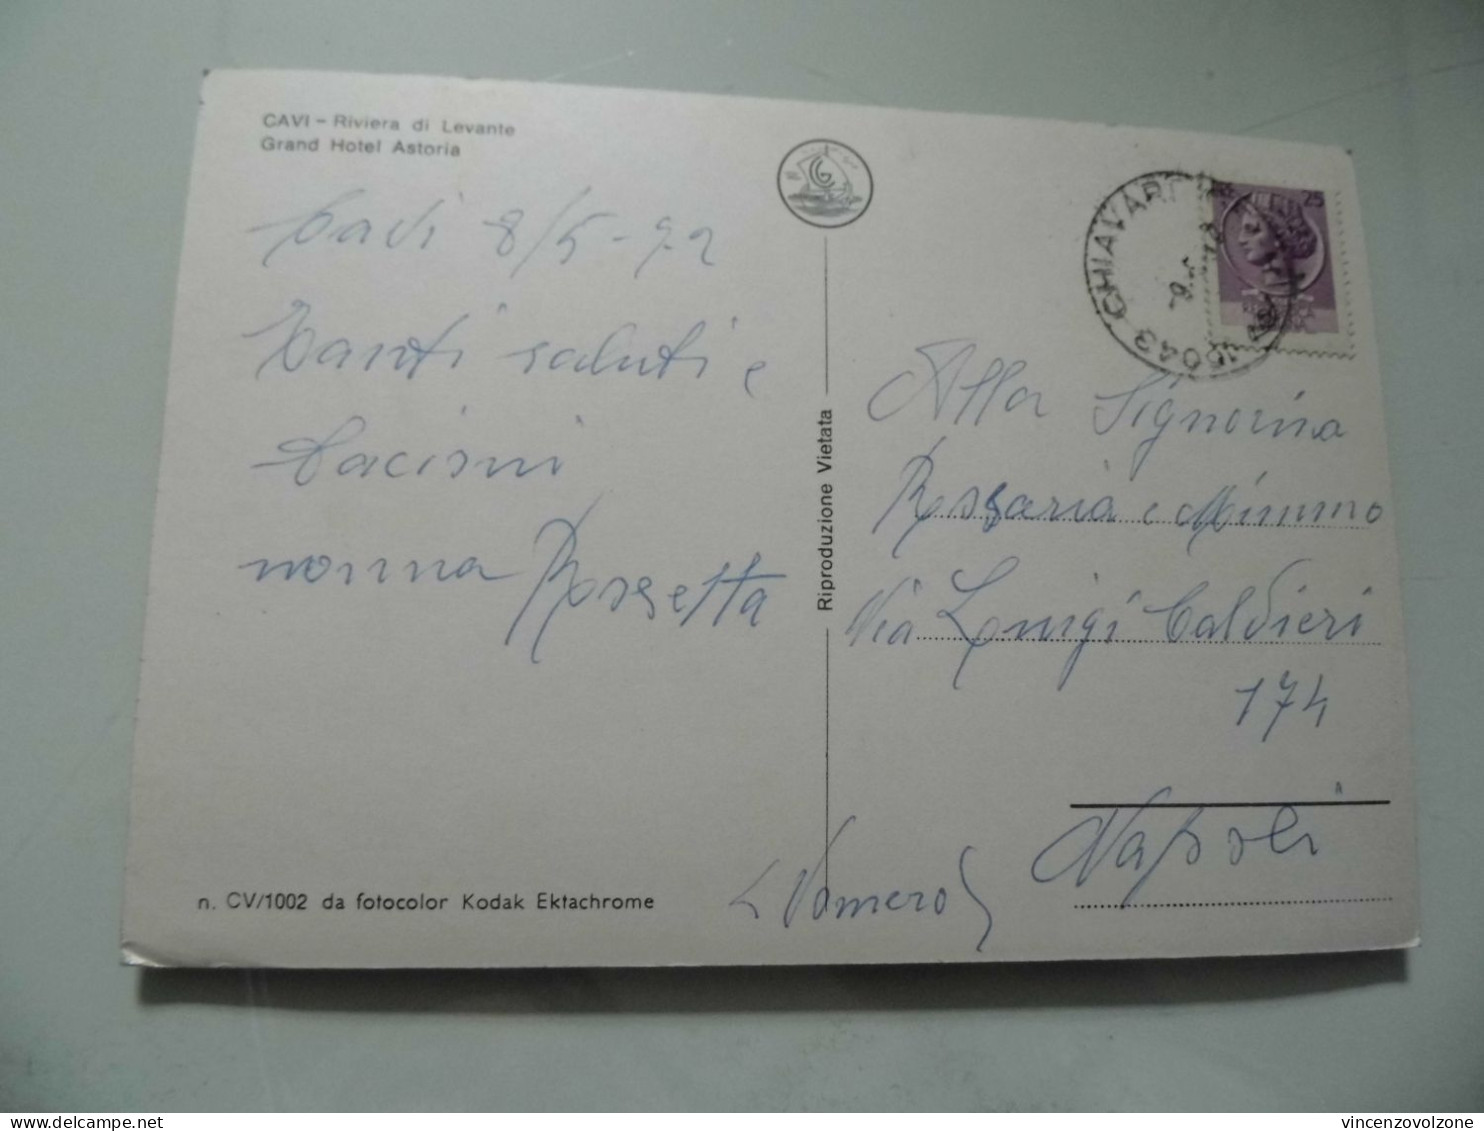 CAVI - Riviera di Levante
Grand Hotel Astoria
Cavi 8/5-72
Tanti saluti e
bacioni
nonna Rossetta
n. CV/1002 da fotocolor Kodak Ektachrome
Riproduzione Vietata
CG
25
16043 CHIAVARI
Alla Signorina
Rossaria e Mimmo
Via Luigi Caldieri
174
Napoli
(Vomero)
vincenzovolzone